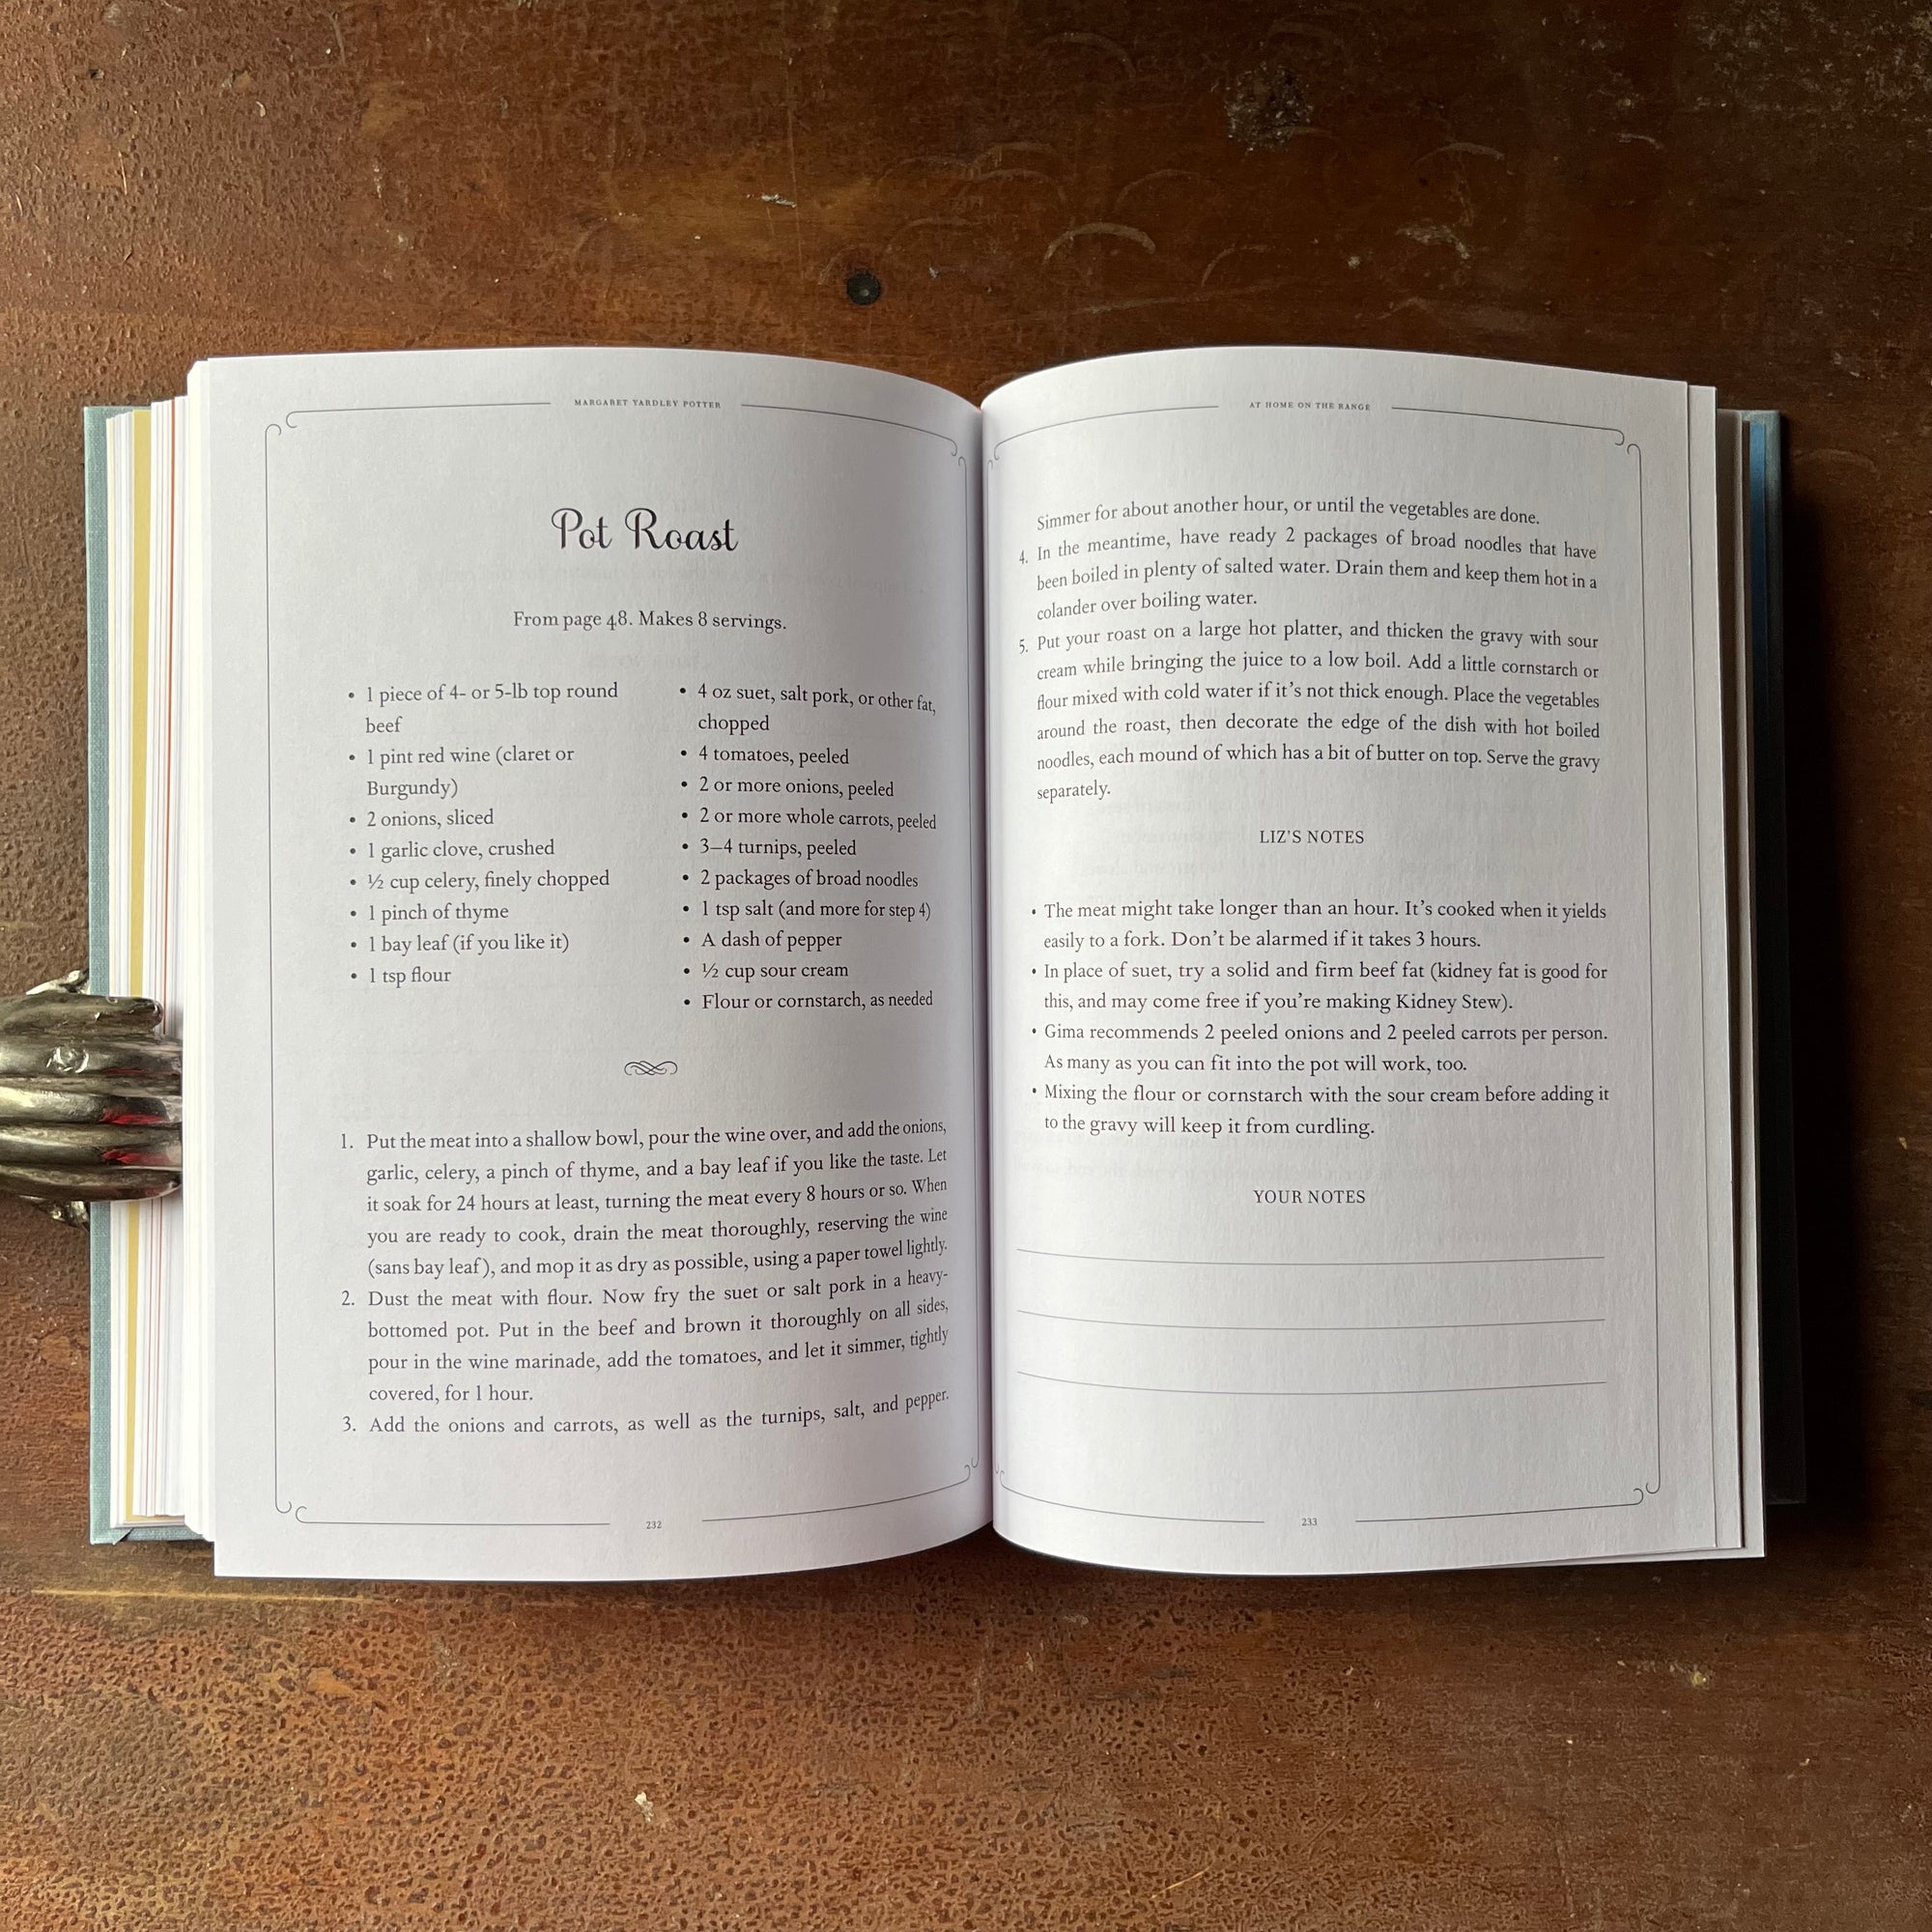 MARGARET YARDLEY POTTER
Pot Roast
From page 48. Makes 8 servings.
• 1 piece of 4- or 5-lb top round
beef
• 1 pint red wine (claret or
Burgundy)
• 2 onions, sliced
• 1 garlic clove, crushed
• ½ cup celery, finely chopped
• 1 pinch of thyme
• 1 bay leaf (if you like it)
• 1 tsp flour
• 4 oz suet, salt pork, or other fat,
chopped
• 4 tomatoes, peeled
• 2 or more onions, peeled
• 2 or more whole carrots, peeled
• 3–4 turnips, peeled
• 2 packages of broad noodles
• 1 tsp salt (and more for step 4)
• A dash of pepper
• ½ cup sour cream
• Flour or cornstarch, as needed
1. Put the meat into a shallow bowl, pour the wine over, and add the onions,
garlic, celery, a pinch of thyme, and a bay leaf if you like the taste. Let
it soak for 24 hours at least, turning the meat every 8 hours or so. When
you are ready to cook, drain the meat thoroughly, reserving the wine
(sans bay leaf), and mop it as dry as possible, using a paper towel lightly.
2. Dust the meat with flour. Now fry the suet or salt pork in a heavy-
bottomed pot. Put in the beef and brown it thoroughly on all sides,
pour in the wine marinade, add the tomatoes, and let it simmer, tightly
covered, for 1 hour.
3. Add the onions and carrots, as well as the turnips, salt, and pepper.
232
AT HOME ON THE RANGE
Simmer for about another hour, or until the vegetables are done.
4. In the meantime, have ready 2 packages of broad noodles that have
been boiled in plenty of salted water. Drain them and keep them hot in a
colander over boiling water.
5. Put your roast on a large hot platter, and thicken the gravy with sour
cream while bringing the juice to a low boil. Add a little cornstarch or
flour mixed with cold water if it's not thick enough. Place the vegetables
around the roast, then decorate the edge of the dish with hot boiled
noodles, each mound of which has a bit of butter on top. Serve the gravy
separately.
LIZ'S NOTES
• The meat might take longer than an hour. It's cooked when it yields
easily to a fork. Don't be alarmed if it takes 3 hours.
• In place of suet, try a solid and firm beef fat (kidney fat is good for
this, and may come free if you're making Kidney Stew).
• Gima recommends 2 peeled onions and 2 peeled carrots per person.
As many as you can fit into the pot will work, too.
• Mixing the flour or cornstarch with the sour cream before adding it
to the gravy will keep it from curdling.
YOUR NOTES
233